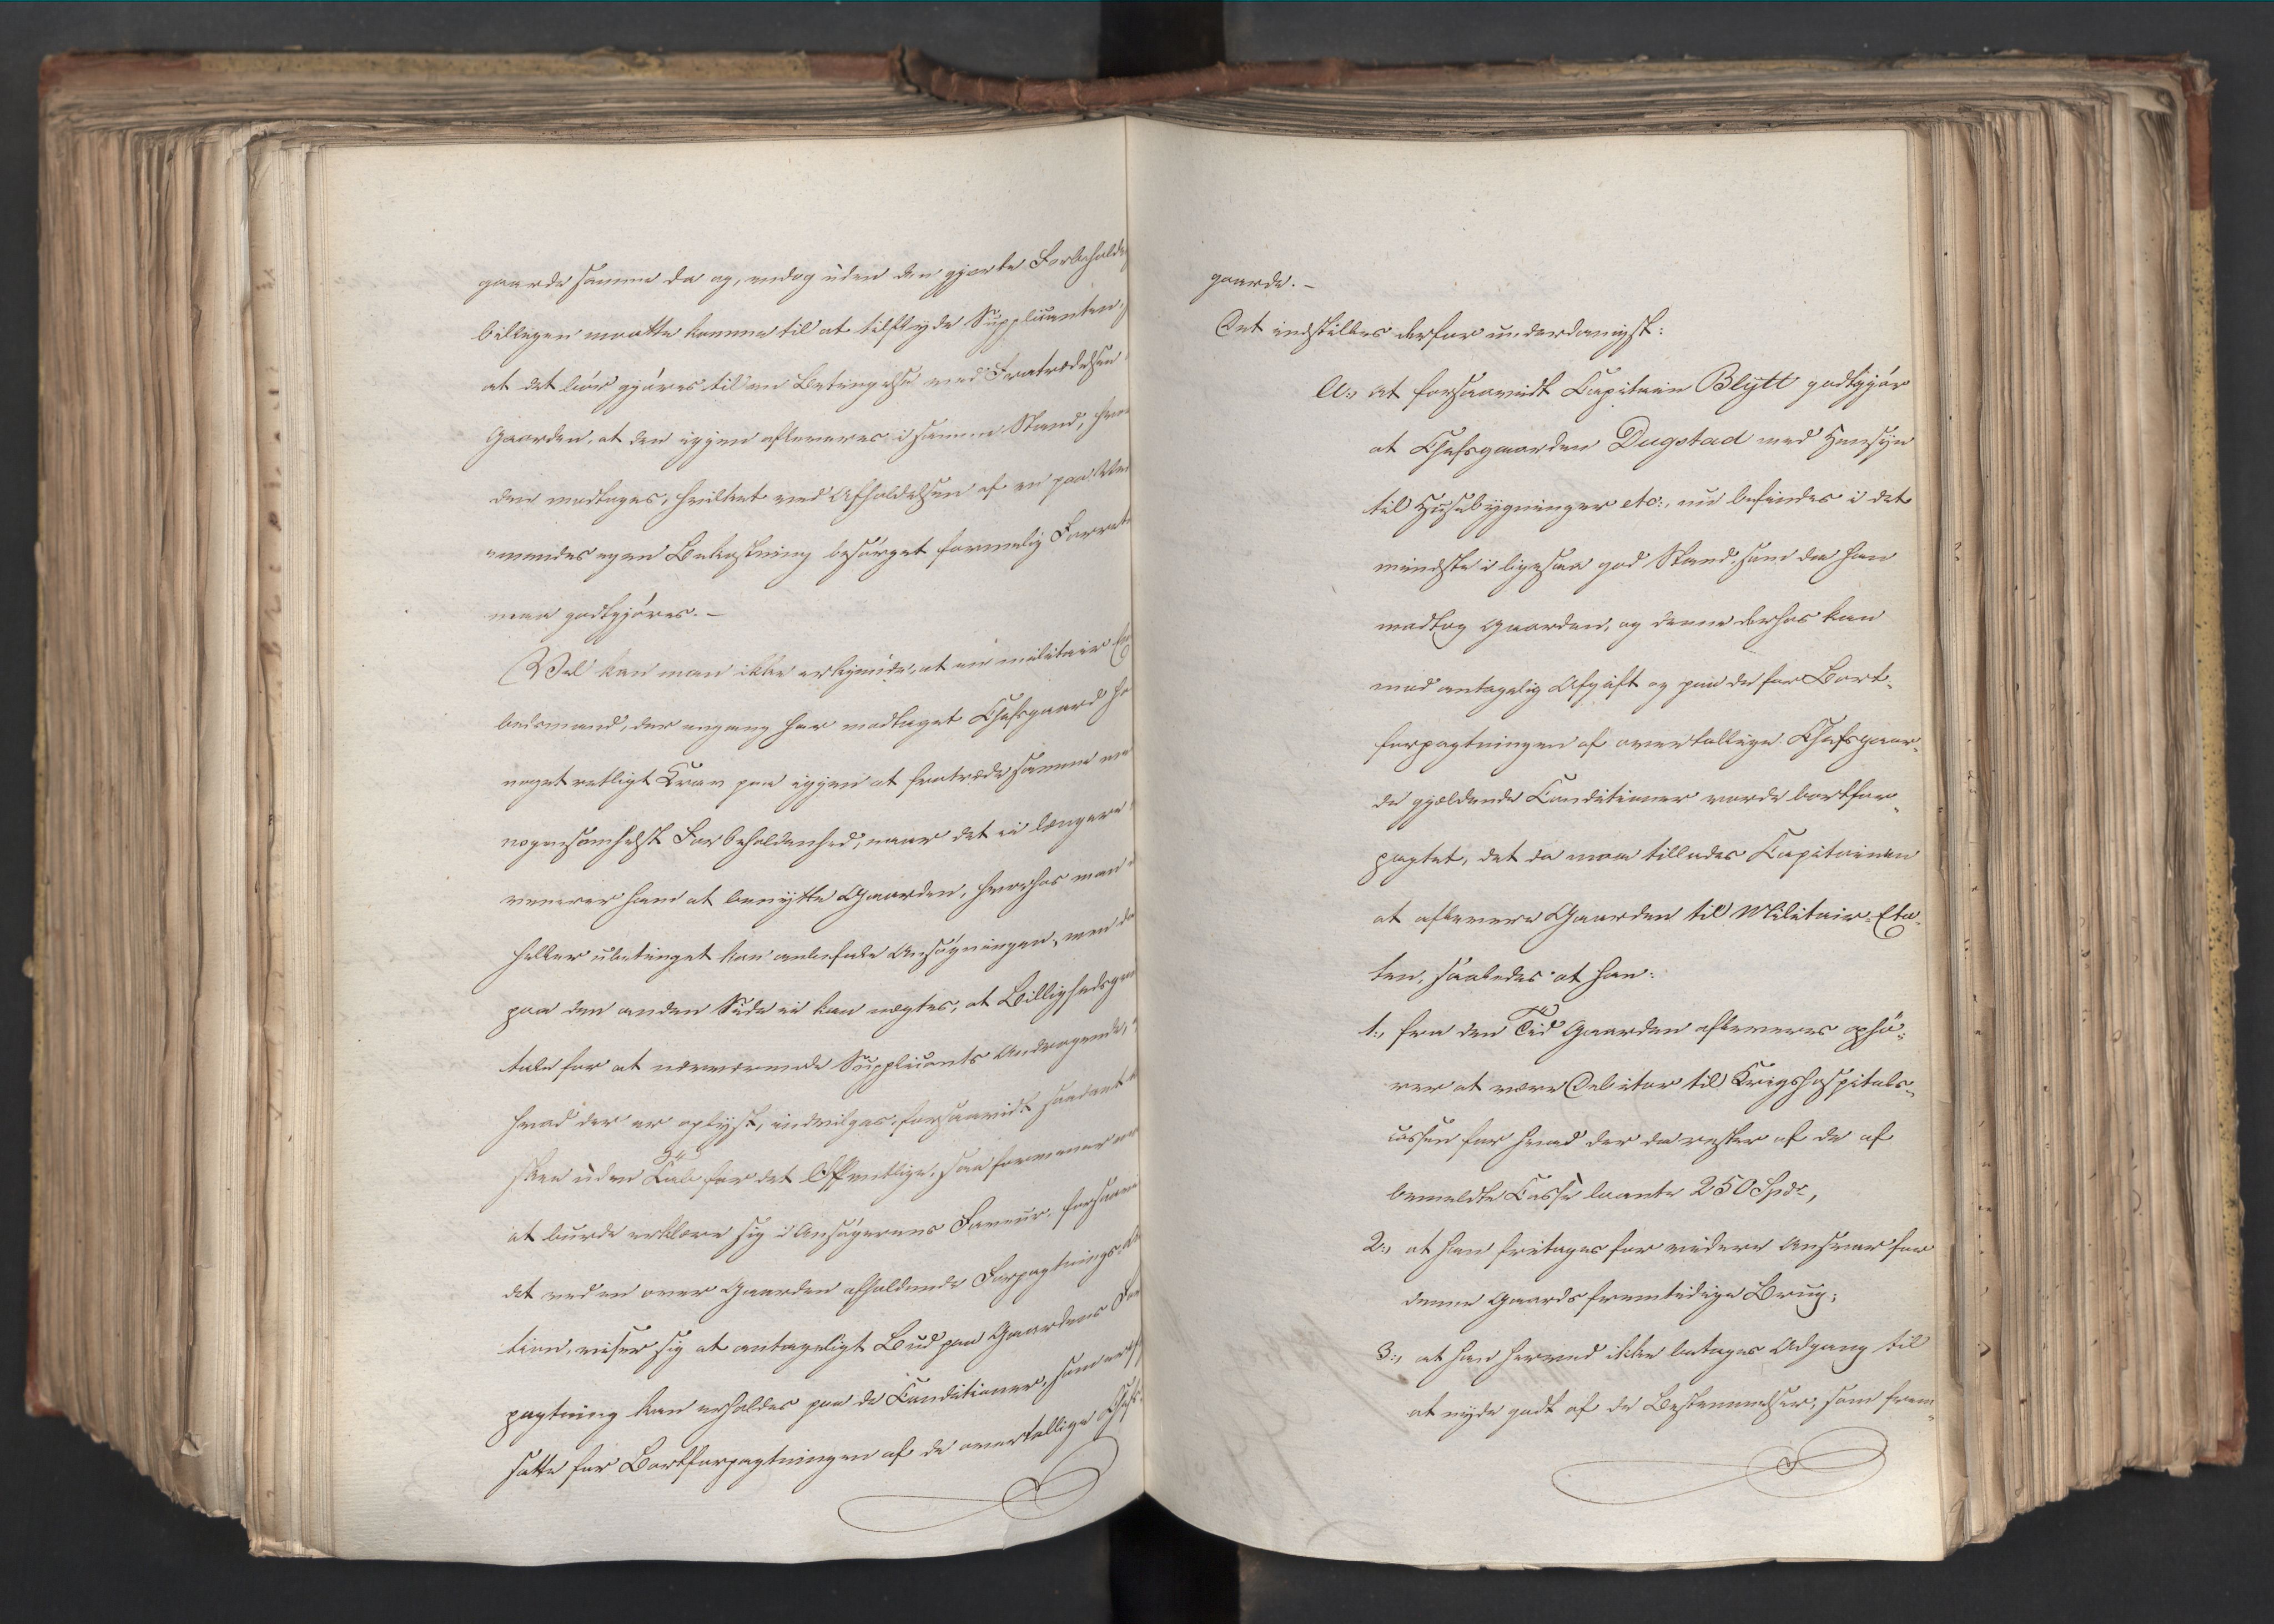 gaarde samme da og, endog uden den gjorte Forbeholde
billigen maatte komme til at tilflyde Supplicanten,
at det bør gjøres til en Betingelse ved Fratrædelsen
Gaarden, at den igjen afleveres i samme Stand, hvor
den modtoges, hvilket ved Afholdelsen af en paa Ved
=mendes egen Bekostning besørget formelig Forret
maa godtgjøres.-
Vel kan man ikke erkjende, at en militair Em
bedsmand, der engang har modtaget Chefsgaard ha
noget retligt Krav paa igjen at fratræde samme ved
nogensomhelst Forbeholdenhed, naar det ei længere
convenerer ham at benytte Gaarden, hvorhos man
heller ubetinget kan anbefale Ansøgningen, men da
paa den anden Side ei kan nægtes, at Billighedsgru
tale for at nærværende Supplicants Andragende,
hvad der er oplyst, indvilges, forsaavidt saadant
skee uden Tab for det Offentlige, saa formener man
at burde erklære sig i Ansøgerens Faveur, forsaavi
det ved en over Gaarden afholdende Forpagtnings-Au
tion, viser sig at antageligt Bud paa Gaardens For
pagtning kan erholdes paa de Conditioner, som ere f
satte for Bortforpagtningen af de overtallige Chefs
gaarde.-
Det indstilles derfor underdanigst:
A:, at forsaavidt Capitain Blÿtt godtgjør
at Chefsgaarden Dugstad med Hensyn
til Husebygninger etc:, nu befindes i det
mindste i ligesaa god Stand, som da han
modtog Gaarden, og denne derhos kan
mod antagelig Afgift og paa de for Bort-
forpagtningen af overtallige Chefsgaar-
de gjældende Conditioner vorde bortfor-
pagtet, det da maa tillades Capitainen
at aflevere Gaarden til Militair-Eta-
ten, saaledes at han:
1:, fra den Tid Gaarden afleveres ophø-
rer at være Debitor til Krigshospitals-
cassen for hvad der da rester af de af
bemeldte Casse laante 250 Spdr,
2:, at han fritages for videre Ansvar for
denne Gaards fremtidige Brug;
3:, at han herved ikke betages Adgang til
at nyde godt af de Bestemmelser, som frem-